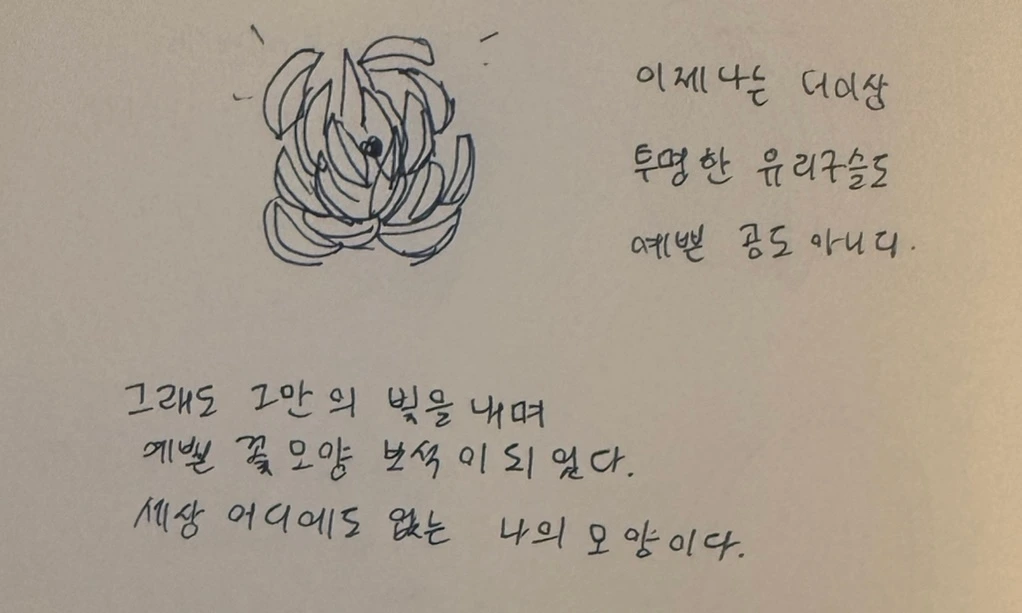 이제 나는 더이상
투명한 유리구슬도
예쁜 공도 아니다.
그래도 그만의 빛을 내며
예쁜 꽃모양 보석이 되었다.
세상 어디에도 없는 나의 모양이다.